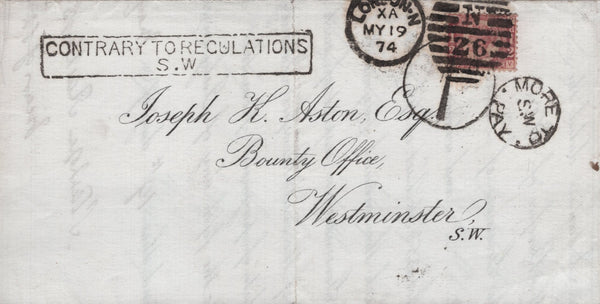 CONTRARY TO REGULATIONS
S.W
LONDON-N
XA
MY 19
74
N
26
1
MORE TO PAY
S.W
Joseph K. Aston, Esq.
Bounty Office,
Westminster,
S.W.